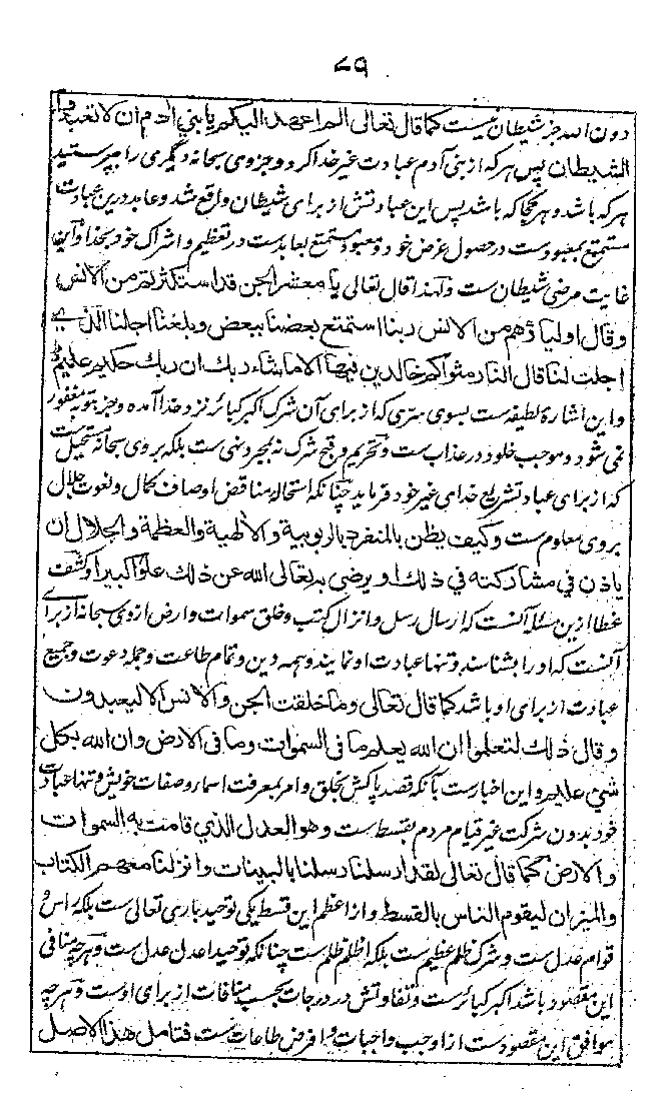 ۷۹
دون الله جز شیطان نیست کما قال تعالی الم اعهد الیکم یا بنی آدم ان لا تعبدوا
الشیطان پس هر که از بنی آدم عبادت غیر خدا کرد و جزوی سبحانه دیگری را پرستید
هر که باشد و هر کجا که باشد پس این عبادتش از برای شیطان واقع شد و عابد درین عبادت
مستمتع بمعبودست در حصول غرض خود و معبود مستمتع بعابدست در تعظیم و اشراک خود بخدا و این
غایت مرضی شیطان ست و لهذا قال تعالی یا معشر الجن قد استکثرتم من الانس
وقال اولیاؤهم من الانس ربنا استمتع بعضنا ببعض وبلغنا اجلنا الذی
اجلت لنا قال النار مثواکم خالدین فیها الا ما شاء ربک ان ربک حکیم علیم
و این اشارهٔ لطیفه ست بسوی سری که از برای آن شرک اکبر کبائر نزد خدا آمده و جز بتوبه مغفور
نمی شود و موجب خلود در عذاب ست و تحریم و قبح شرک نه بمجرد نهی ست بلکه بروی سبحانه مستحیل ست
که از برای عباد تشریع خدای غیر خود فرماید چنانکه استحالهٔ مناقض اوصاف کمال و نعوت جلال
بروی معلوم ست وکیف یظن بالمنفرد بالربوبیة والالهیة والعظمة والجلال ان
یاذن فی مشارکته فی ذلک او یرضی به تعالی الله عن ذلک علوا کبیرا و کشف
غطا ازین مسئله آنست که ارسال رسل و انزال کتب و خلق سموات و ارض ازوی سبحانه از برای
آنست که او را بشناسند و تنها عبادت او نمایند و همه دین و تمام طاعت و جمله دعوت و جمیع
عبادت از برای او باشد کما قال تعالی وما خلقت الجن والانس الا لیعبدون
وقال ذلک لتعلموا ان الله یعلم ما فی السموات وما فی الارض وان الله بکل
شیء علیم و این اخبارست بآنکه قصد پاکش بخلق و امر معرفت اسماء و صفات خویش و تنها عبادت
خود بدون شرکت غیر قیام مردم بقسط ست وهو العدل الذی قامت به السموات
والارض کما قال تعالی لقد ارسلنا رسلنا بالبینات وانزلنا معهم الکتاب
والمیزان لیقوم الناس بالقسط و از اعظم این قسط یکی توحید باری تعالی ست بلکه راس و
قوام عدل ست و شرک ظلم عظیم ست بلکه اظلم ظلم ست چنانکه توحید اعدل عدل ست و هر چه منافی
این مقصود باشد اکبر کبائرست و تفاوتش در درجات بحسب منافات از برای اوست و هر چه
موافق این مقصود ست از اوجب واجبات و افرض طاعات ست فتامل هذا الاصل